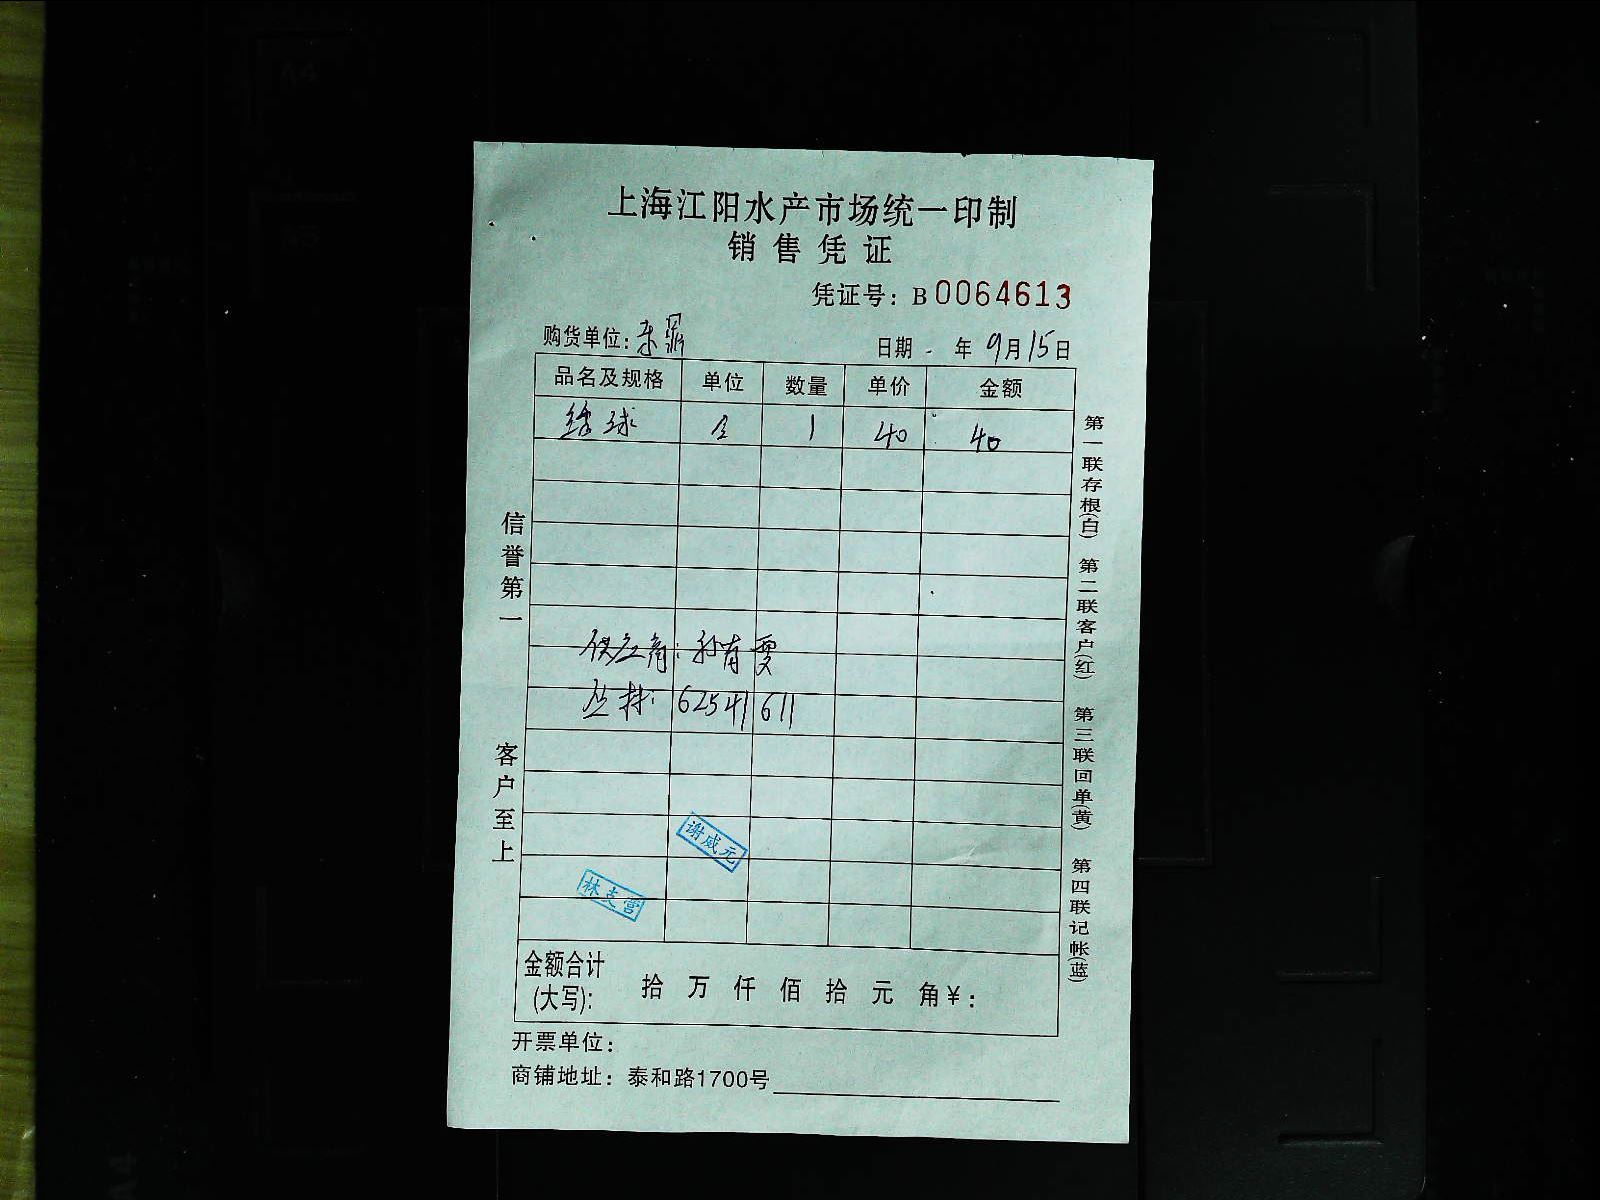 上海江阳水产市场统一印制
销售凭证
凭证号：B 0064613
购货单位：东鼎 日期 年 9月15日
品名及规格 单位 数量 单价 金额
绣球 1 40 40
供应商：孙有雯
电持：62541611
谢成元
林支营
金额合计(大写)： 拾 万 仟 佰 拾 元 角￥：
开票单位：
商铺地址：泰和路1700号
信誉第一 客户至上
第一联存根(白) 第二联客户(红) 第三联回单(黄) 第四联记帐(蓝)